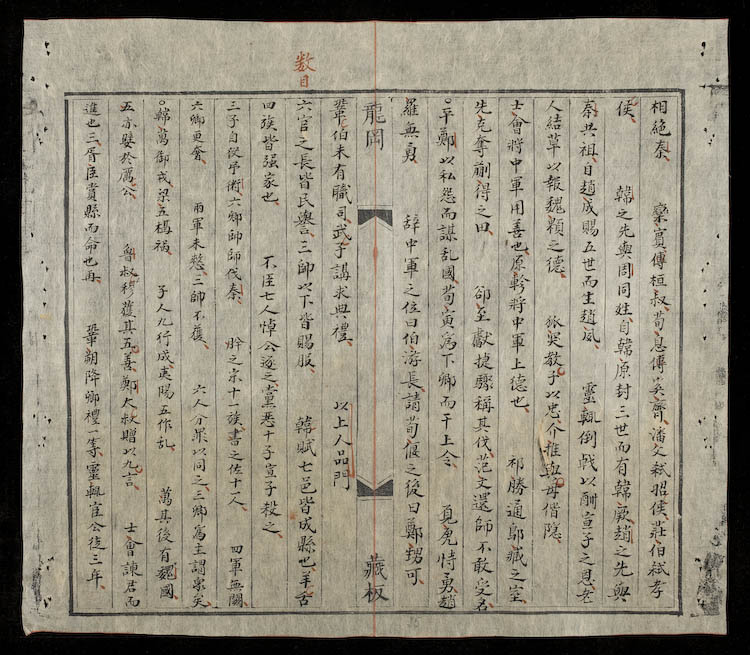 相絶秦　欒賓傅桓叔荀息傅奚齊潘父弒昭侯莊伯弒孝
侯　韓之先與周同姓自韓原封三世而有韓厥趙之先與
秦共祖自趙成賜五世而生趙夙　靈輒倒戟以酬宣子之恩老
人結草以報魏顆之德　狐突教子以忠介推與母偕隱
士會將中軍用善也原軫將中軍上德也　祁勝通鄔臧之室
先克奪蒯得之田　郤至獻捷驟稱其伐范文還師不敢受名
○平鄭以私怨而謀乱國荀寅為下卿而干上令　恃勇趙
羅無勇　辭中軍之位曰伯游長請荀偃之後曰鄭甥可
龍岡　藏板
鞏伯未有職司武子講求典禮　以上人品門
数目
六官之長皆民譽三帥以下皆賜服　韓賦七邑皆成縣也羊舌
四族皆强家也　不臣七人悼公逐之黨惡十子宣子殺之
三子自役學術六卿帥師伐秦　肸之宗十一族書之佐十一人　四軍無闕
六卿更會　兩軍未憖三帥不獲　六人分罪以同之三卿為主謂衆矣
○韓萬御戎梁五構禍　子人九行成夷陽五作乱　萬其後有魏國
五亦嬖於厲公　魯叔穆獲其五善鄭大叔贈以九言　士會諫君而
進也三胥臣賞縣而命也再　鞏朔降卿禮一等靈輒宦公後三年